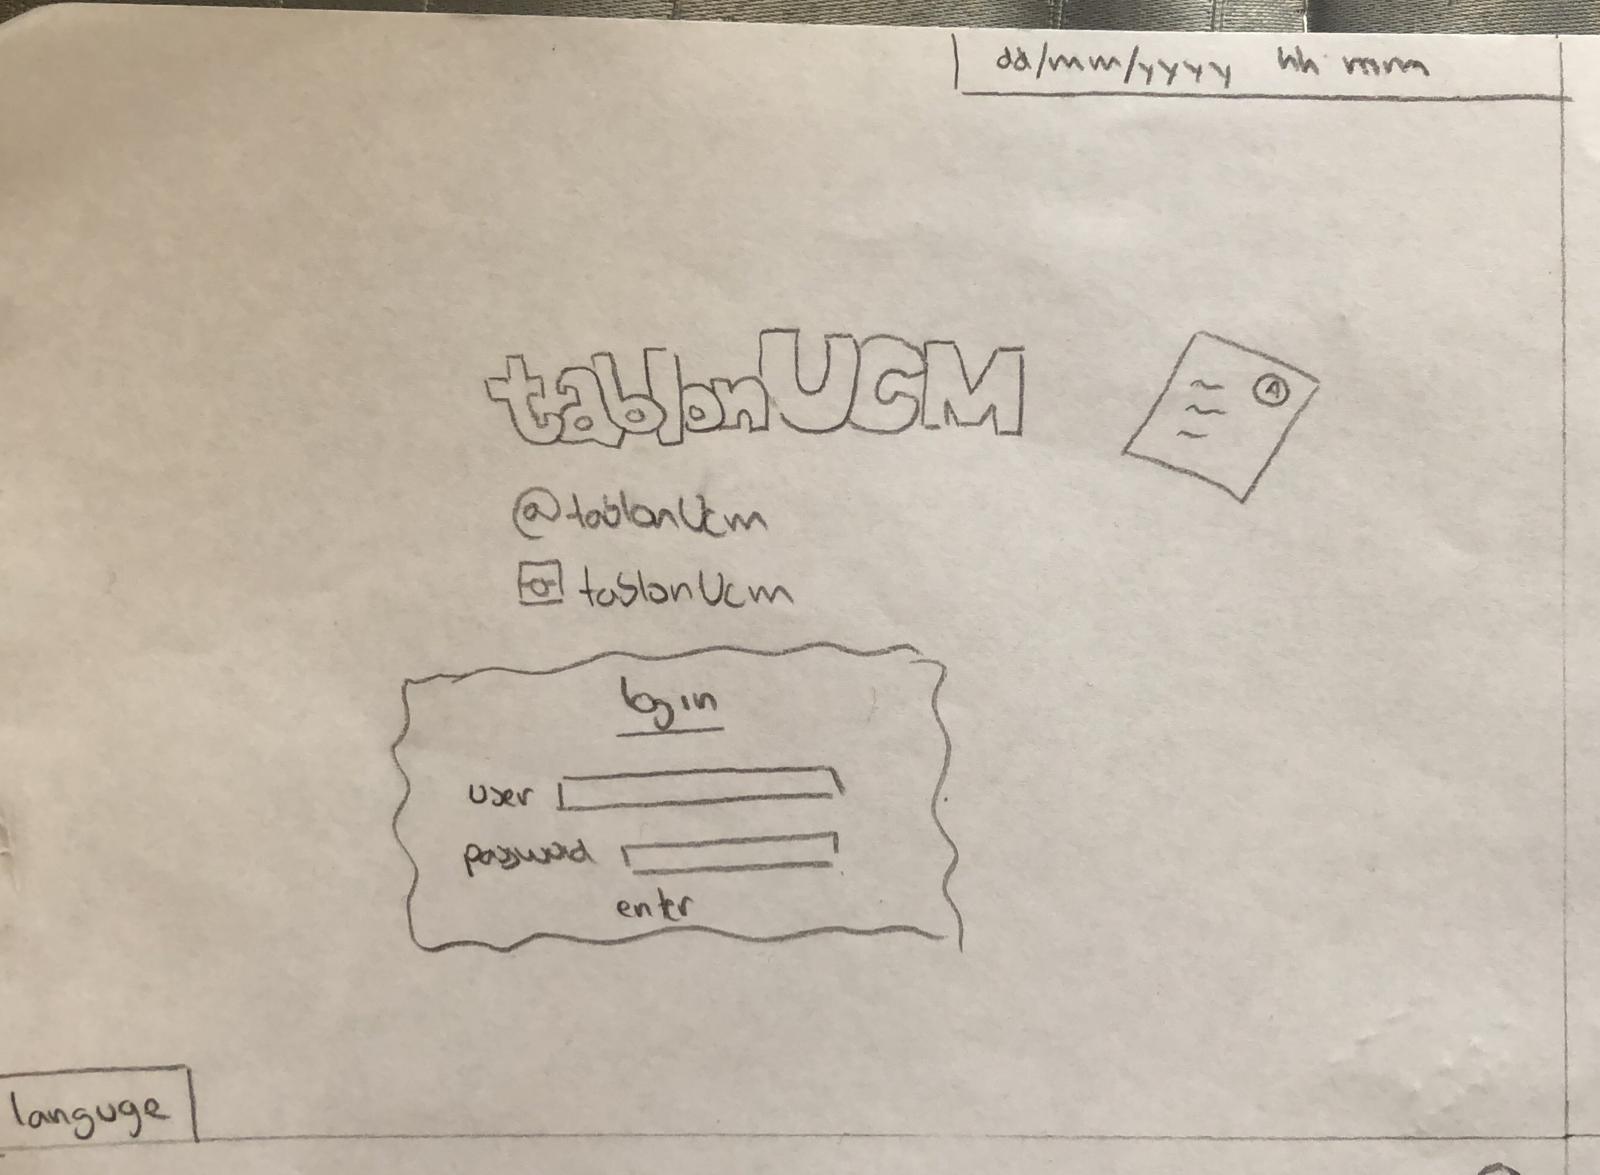 dd/mm/yyyy hh mm
tablonUCM
A
@tablonUcm
tablonUcm
log in
user
password
enter
languge